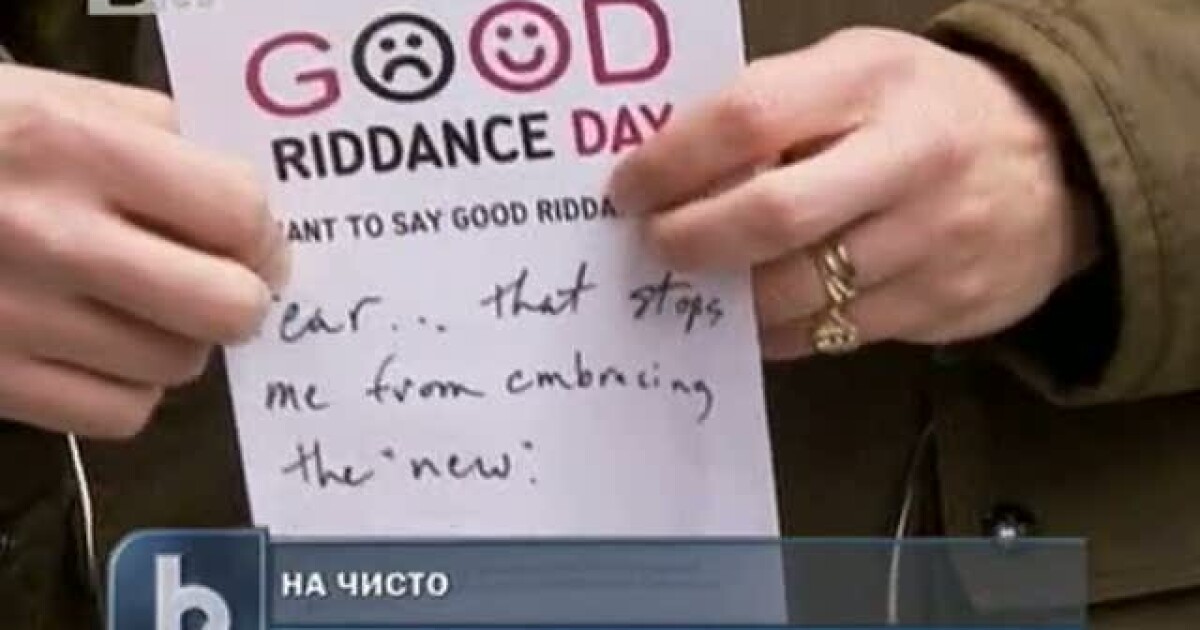 GOOD
RIDDANCE DAY
ANT TO SAY GOOD RIDDA
ear... that stops
me from embracing
the "new".
b
НА ЧИСТО